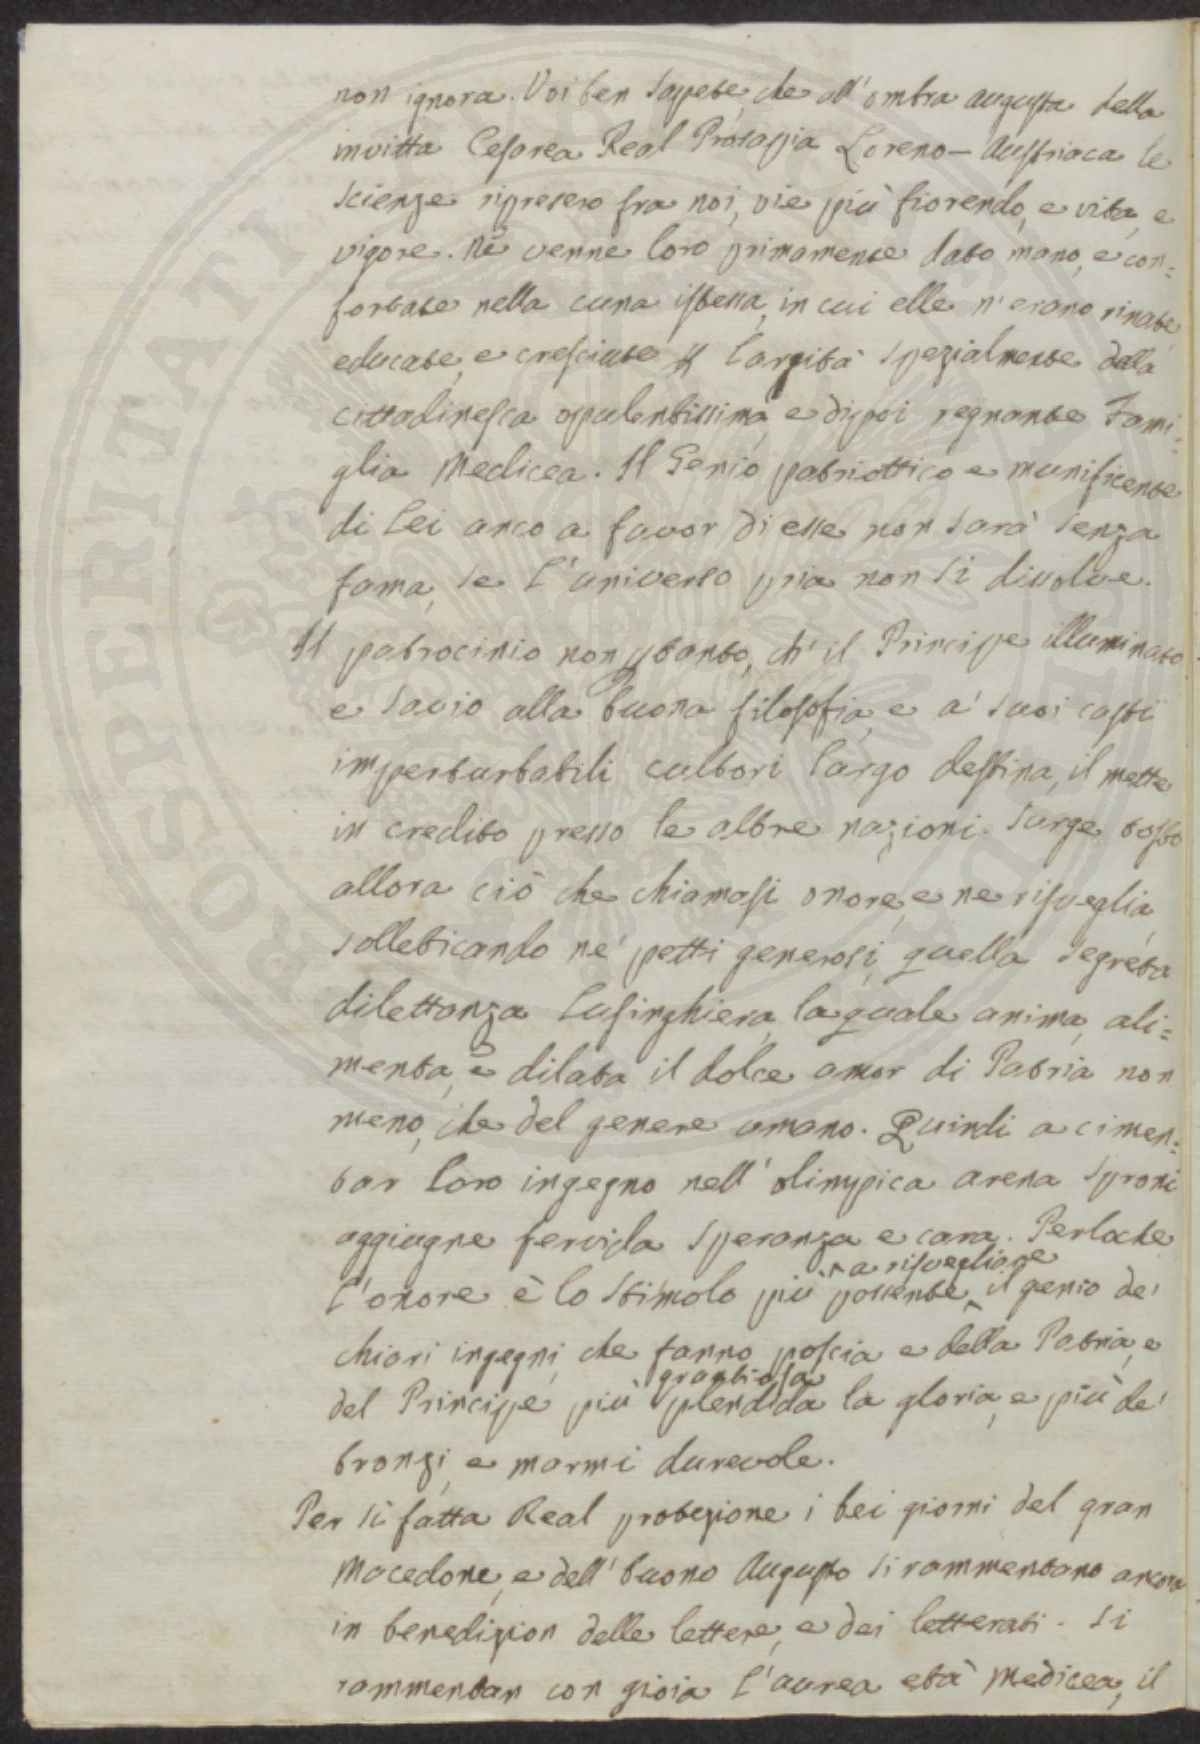 non ignora. Voi ben sapete, che all'ombra augusta della
invitta Cesarea Real Prosapia Loreno-Austriaca le
scienze ripresero fra noi, vie più fiorendo, e vita, e
vigore. Nè venne loro primamente dato mano, e con=
fortate nella cuna istessa, in cui elle n'erano rinate,
educate, e cresciute p largità spezialmente della
cittadinesca opulentissima, e dipoi regnante Fami=
glia Medicea. Il Genio patriottico e munificente
di Lei anco a favor di esse non sarà senza
fama, se l'universo pria non si dissolve.
Il patrocinio non ptanto, ch'il Principe illuminato
e savio alla buona filosofia, e a' suoi casti
imperturbabili cultori largo destina, il mette
in credito presso le altre nazioni. Surge tosto
allora ciò che chiamasi onore, e ne risveglia,
solleticando ne' petti generosi, quella segreta
dilettanza lusinghiera, la quale anima, ali=
menta, e dilata il dolce amor di Patria non
meno, che del genere umano. Quindi a cimen=
tar loro ingegno nell'olimpica arena sproni
aggiugne fervida speranza e cara. Perloche
a risvegliare
l'onore è lo stimolo più possente il genio de'
chiari ingegni, che fanno poscia e della Patria, e
grandiosa
del Principe più splendida la gloria, e più de'
bronzi, e marmi durevole.
Per sì fatta Real protezione i bei giorni del gran
Macedone, e dell'buono Augusto si rammentano ancora
in benedizion delle lettere, e dei letterati. Si
rammentan con gioia l'aurea età Medicea, il